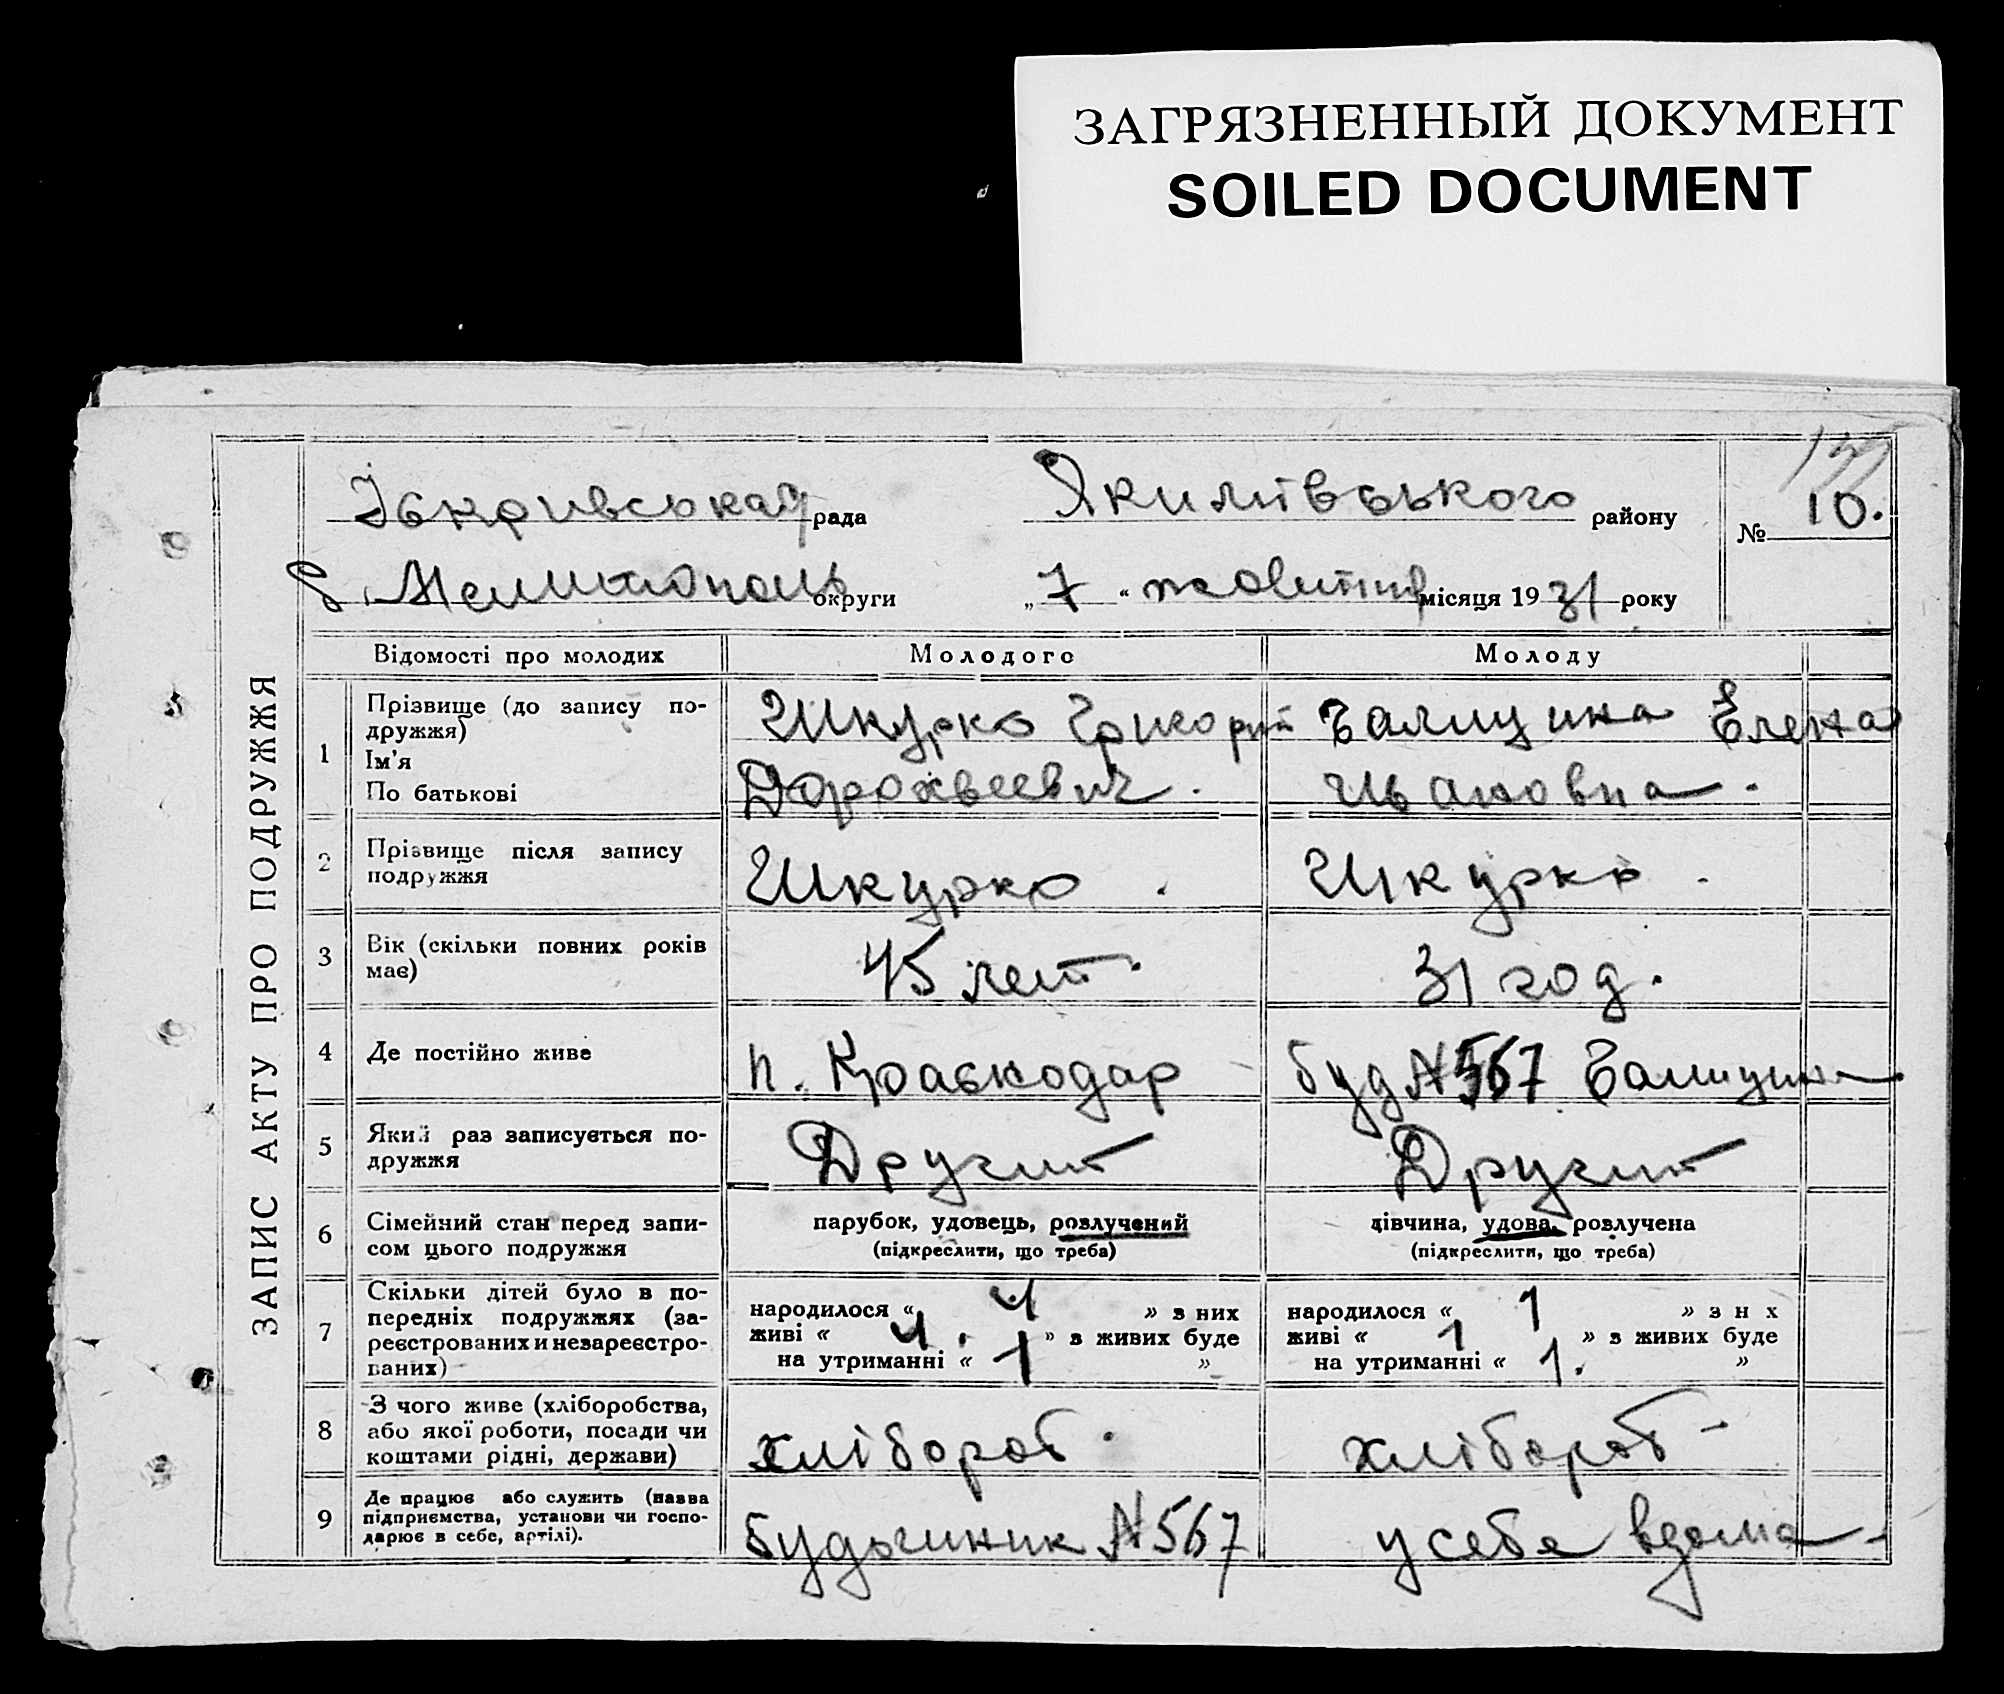 ЗАГРЯЗНЕННЫЙ ДОКУМЕНТ
SOILED DOCUMENT
ЗАПИС АКТУ ПРО ПОДРУЖЖЯ
рада Якимівського району № 10.
Мелитополь округи „ 7 “ жовтня місяця 1931 року
Відомості про молодих Молодого Молоду
1 Прізвище (до запису по-
дружжя)
Ім'я
По батькові
Шкурко Григорий
Дорохвеевич.
Галицина Елена
Ивановна.
2 Прізвище після запису
подружжя
Шкурко.
Шкурко.
3 Вік (скільки повних років
має)
45 лет.
31 год.
4 Де постійно живе
п. Краснодар
буд № 567 Галицина
5 Який раз записується по-
дружжя
Другий
Другий
6 Сімейний стан перед запи-
сом цього подружжя
парубок, удовець, розлучений
(підкреслити, що треба)
дівчина, удова, розлучена
(підкреслити, що треба)
7 Скільки дітей було в по-
передніх подружжях (за-
реєстрованих и незареєстро-
ваних)
народилося « 4 » з них
живі « 4. » з живих буде
на утриманні « 1 »
народилося « 1 » з н х
живі « 1 » з живих буде
на утриманні « 1. »
8 З чого живе (хліборобства,
або якої роботи, посади чи
коштами рідні, держави)
хлібороб.
хлібороб
9 Де працює або служить (назва
підприємства, установи чи госпо-
дарює в себе, артілі).
№ 567
у себе вдома